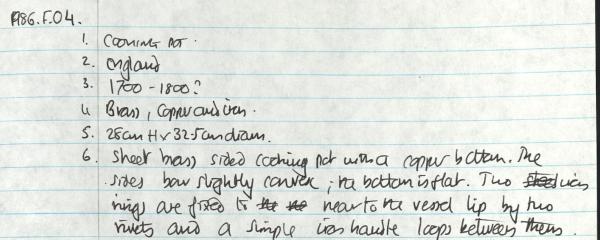 A86.F.04.
1. Cooking Pot.
2. England
3. 1700 - 1800?
4. Brass, Copper and iron.
5. 28cm H x 32.5cm diam.
6. Sheet brass sided cooking pot with a copper bottom. The
sides bow slightly convex, the bottom is flat. Two iron
rings are fixed to near to the vessel lip by two
rivets and a simple iron handle loops between them.